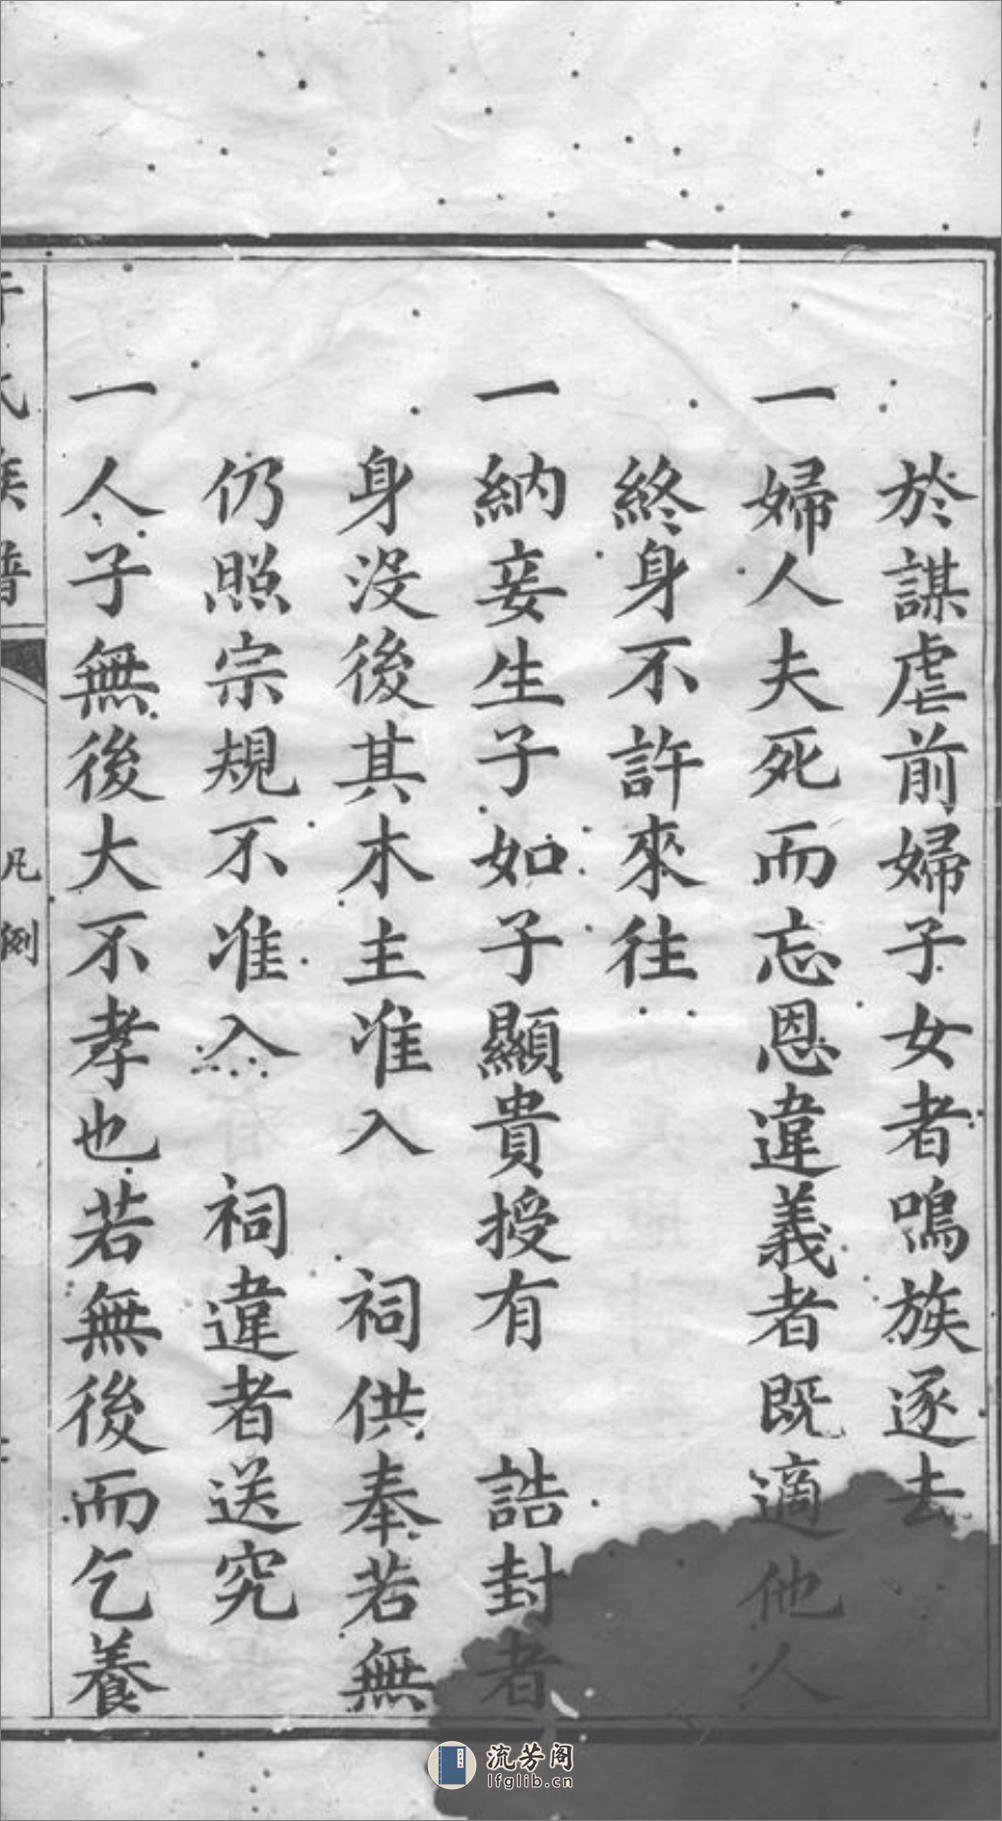 於謀虐前婦子女者鳴族逐去
一婦人夫死而忘恩違義者既適他人
終身不許來往
一納妾生子如子顯貴授有 誥封者
身沒後其木主准入 祠供奉若無
仍照宗規不准入 祠違者送究
一人子無後大不孝也若無後而乞養
氏族譜
凡例
流芳阁
lfglib.cn